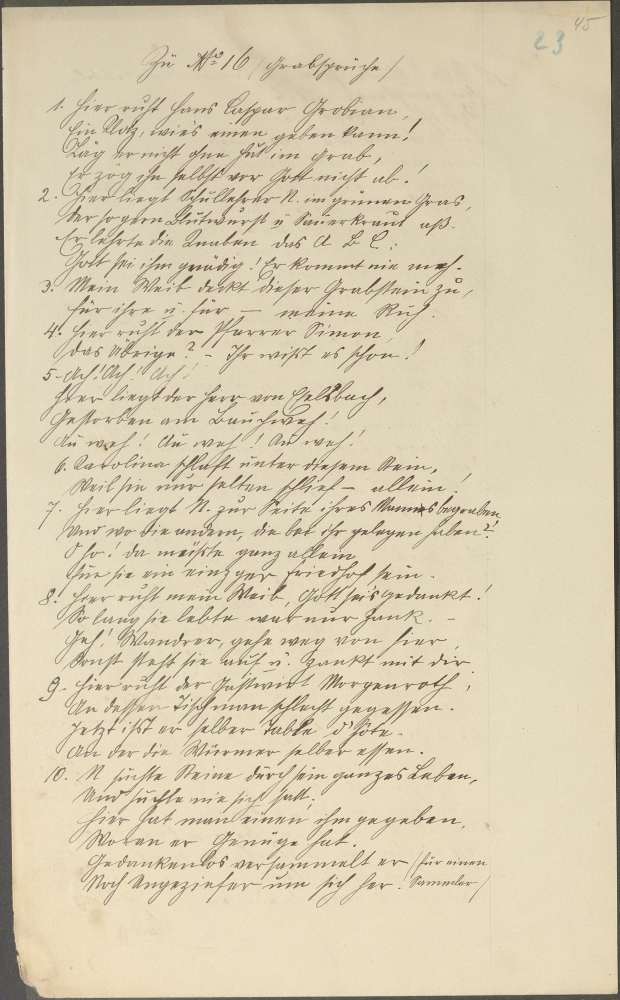 45
23
Zu No 16 (Grabsprüche)
1. Hier ruht Hans Caspar Grobian,
Ein Kloz, wie's einen geben kann!
Läg er nicht ohne Hut im Grab,
Er zög ihn selbst vor Gott nicht ab!
2. Hier liegt Schullehrer N. im grünen Gras,
Der so gern Blutwurst u Sauerkraut aß.
Er lehrte die Knaben das A B C;
Gott sei ihm gnädig! Er kommt nie meh.
3. Mein Weib deckt dieser Grabstein zu,
Für ihre u. für – meine Ruh.
4. Hier ruht der Pfarrer Simon,
Das Übrige? – Ihr wißt es schon!
5. Ach! Ach! Ach!
Hier liegt der Herr von Eselsbach,
Gestorben am Bauchweh!
Au weh! Au weh! Au weh!
6. Karolina schlaft unter diesem Stein,
Weil sie nur selten schlief – allein!
7. Hier liegt N. zur Seite ihres Mannes begraben
Und wo die andern, die bei ihr gelegen haben?!
O ho! da müßte ganz allein
Für sie ein einzger Friedhof sein.
8. Hier ruht mein Weib, Gott sei's gedankt!
So lang sie lebte war nur Zank. –
Geh! Wandrer, gehe weg von hier,
Sonst steht sie auf u. zankt mit dir
9. Hier ruht der Gastwirt Morgenroth,
An dessen Tisch man schlecht gegessen.
Jetzt ist er selber Table d'Hôte.
An der die Würmer selber essen.
10. N suchte Steine durch sein ganzes Leben,
Und suchte nie sich satt;
Hier hat man einen ihm gegeben,
Woran er Genüge hat.
Gedankenlos versammelt er (für einen
Noch Ungeziefer um sich her! Sammler)